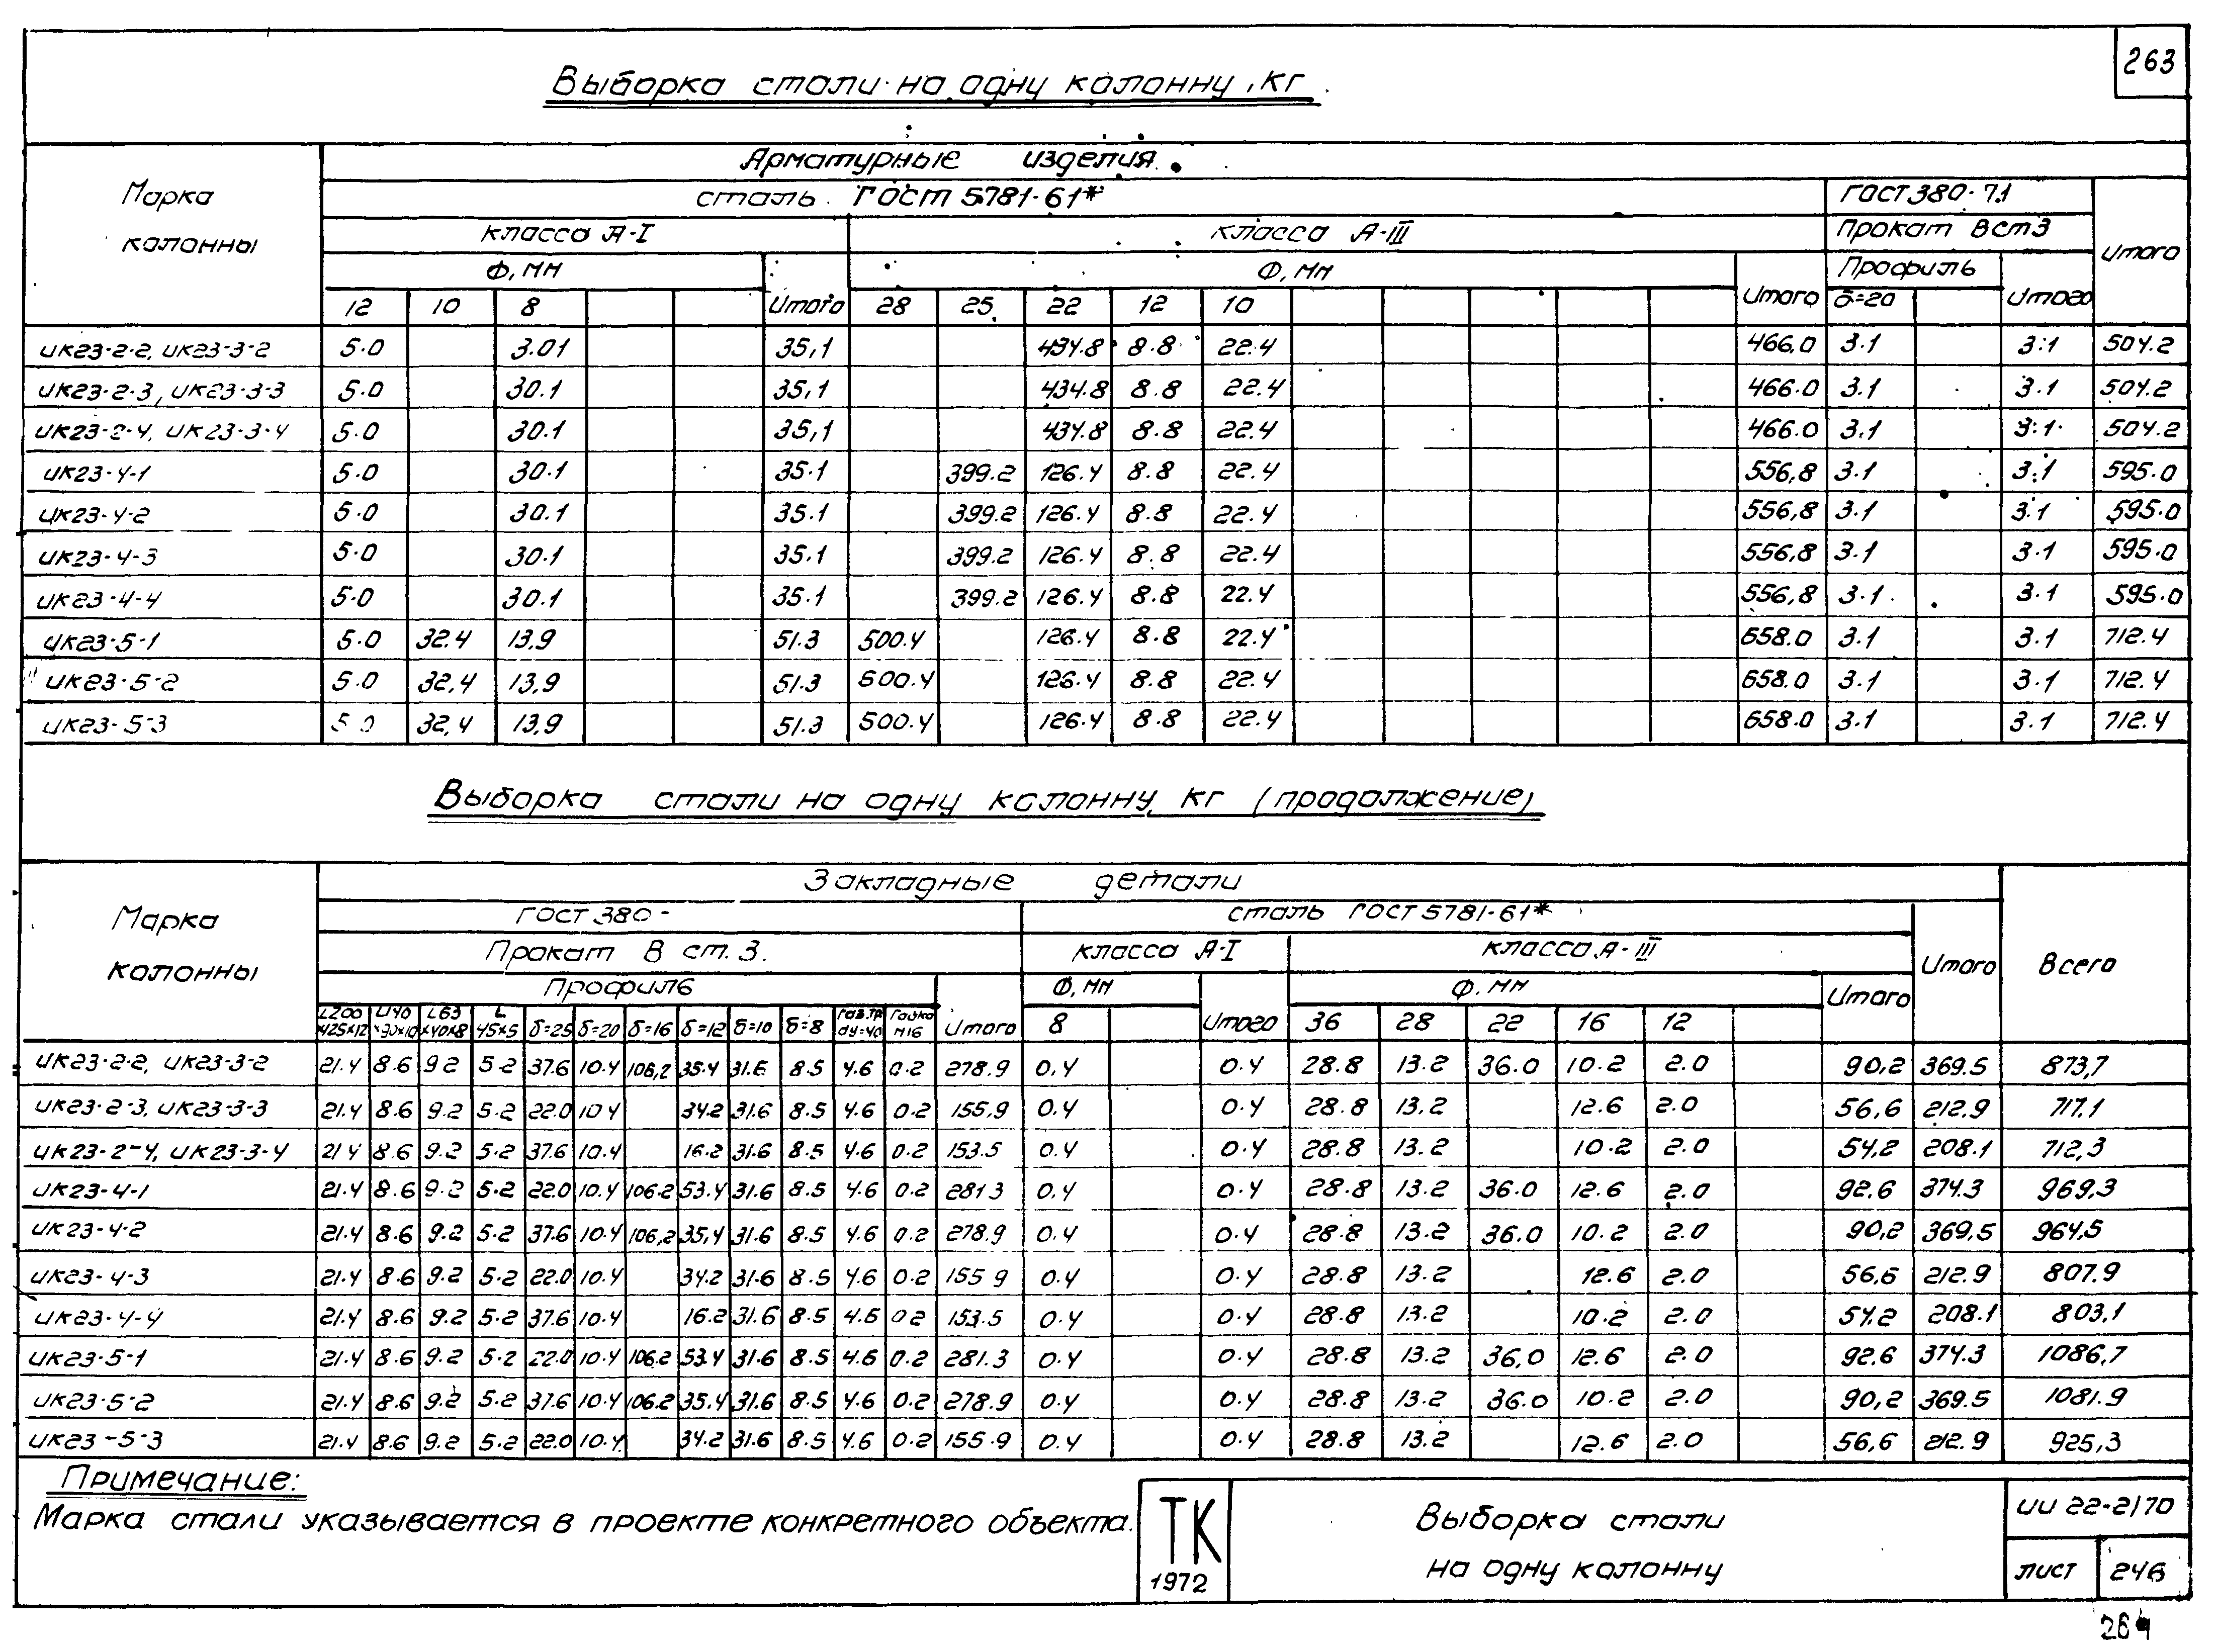 263
Выборка стали на одну колонну, кг
Марка колонны
Арматурные изделия
сталь ГОСТ 5781-61*
ГОСТ 380-71
Итого
класса А-I
класса А-III
Прокат Вст3
Ф, мм
Итого
Ф, мм
Итого
Профиль
Итого
12 10 8 28 25 22 12 10 δ=20
ИК23-2-2, ИК23-3-2 5.0 3.01 35,1 434.8 8.8 22.4 466,0 3.1 3.1 504.2
ИК23-2-3, ИК23-3-3 5.0 30.1 35,1 434.8 8.8 22.4 466.0 3.1 3.1 504.2
ИК23-2-4, ИК23-3-4 5.0 30.1 35,1 434.8 8.8 22.4 466.0 3.1 3.1 504.2
ИК23-4-1 5.0 30.1 35.1 399.2 126.4 8.8 22.4 556,8 3.1 3.1 595.0
ИК23-4-2 5.0 30.1 35.1 399.2 126.4 8.8 22.4 556,8 3.1 3.1 595.0
ИК23-4-3 5.0 30.1 35.1 399.2 126.4 8.8 22.4 556,8 3.1 3.1 595.0
ИК23-4-4 5.0 30.1 35.1 399.2 126.4 8.8 22.4 556,8 3.1 3.1 595.0
ИК23-5-1 5.0 32.4 13,9 51.3 500.4 126.4 8.8 22.4 658.0 3.1 3.1 712.4
ИК23-5-2 5.0 32,4 13,9 51.3 500.4 126.4 8.8 22.4 658.0 3.1 3.1 712.4
ИК23-5-3 5.0 32,4 13,9 51.3 500.4 126.4 8.8 22.4 658.0 3.1 3.1 712.4
Выборка стали на одну колонну, кг (продолжение)
Марка колонны
Закладные детали
Всего
ГОСТ 380-
сталь ГОСТ 5781-61*
Итого
Прокат В ст. 3.
класса А-I
класса А-III
Профиль
Итого
Ф, мм
Итого
Ф, мм
Итого
L200 ×125×12 ×90×10 L63 ×40×8 L 45×5 δ=25 δ=20 δ=16 δ=12 δ=10 δ=8 Газ.тр. dу=40 Гайка М16 8 36 28 22 16 12
ИК23-2-2, ИК23-3-2 21.4 8.6 9.2 5.2 37.6 10.4 106,2 35.4 31.6 8.5 4.6 0.2 278.9 0.4 0.4 28.8 13.2 36.0 10.2 2.0 90,2 369.5 873,7
ИК23-2-3, ИК23-3-3 21.4 8.6 9.2 5.2 22.0 10.4 34.2 31.6 8.5 4.6 0.2 155,9 0.4 0.4 28.8 13.2 12.6 2.0 56,6 212.9 717.1
ИК23-2-4, ИК23-3-4 21.4 8.6 9.2 5.2 37.6 10.4 16.2 31.6 8.5 4.6 0.2 153.5 0.4 0.4 28.8 13.2 10.2 2.0 54,2 208.1 712,3
ИК23-4-1 21.4 8.6 9.2 5.2 22.0 10.4 106.2 53.4 31.6 8.5 4.6 0.2 281.3 0.4 0.4 28.8 13.2 36.0 12.6 2.0 92.6 374.3 969,3
ИК23-4-2 21.4 8.6 9.2 5.2 37.6 10.4 106,2 35,4 31.6 8.5 4.6 0.2 278.9 0.4 0.4 28.8 13.2 36.0 10.2 2.0 90,2 369.5 964,5
ИК23-4-3 21.4 8.6 9.2 5.2 22.0 10.4 34.2 31.6 8.5 4.6 0.2 155.9 0.4 0.4 28.8 13.2 12.6 2.0 56,6 212.9 807.9
ИК23-4-4 21.4 8.6 9.2 5.2 37.6 10.4 16.2 31.6 8.5 4.6 0.2 153.5 0.4 0.4 28.8 13.2 10.2 2.0 54.2 208.1 803,1
ИК23-5-1 21.4 8.6 9.2 5.2 22.0 10.4 106.2 53.4 31.6 8.5 4.6 0.2 281.3 0.4 0.4 28.8 13.2 36,0 12.6 2.0 92.6 374.3 1086,7
ИК23-5-2 21.4 8.6 9.2 5.2 37.6 10.4 106.2 35.4 31.6 8.5 4.6 0.2 278.9 0.4 0.4 28.8 13.2 36.0 10.2 2.0 90,2 369.5 1081.9
ИК23-5-3 21.4 8.6 9.2 5.2 22.0 10.4 34.2 31.6 8.5 4.6 0.2 155.9 0.4 0.4 28.8 13.2 12.6 2.0 56,6 212.9 925,3
Примечание:
Марка стали указывается в проекте конкретного объекта.
ТК
1972
Выборка стали
на одну колонну
ИИ 22-2/70
лист 246